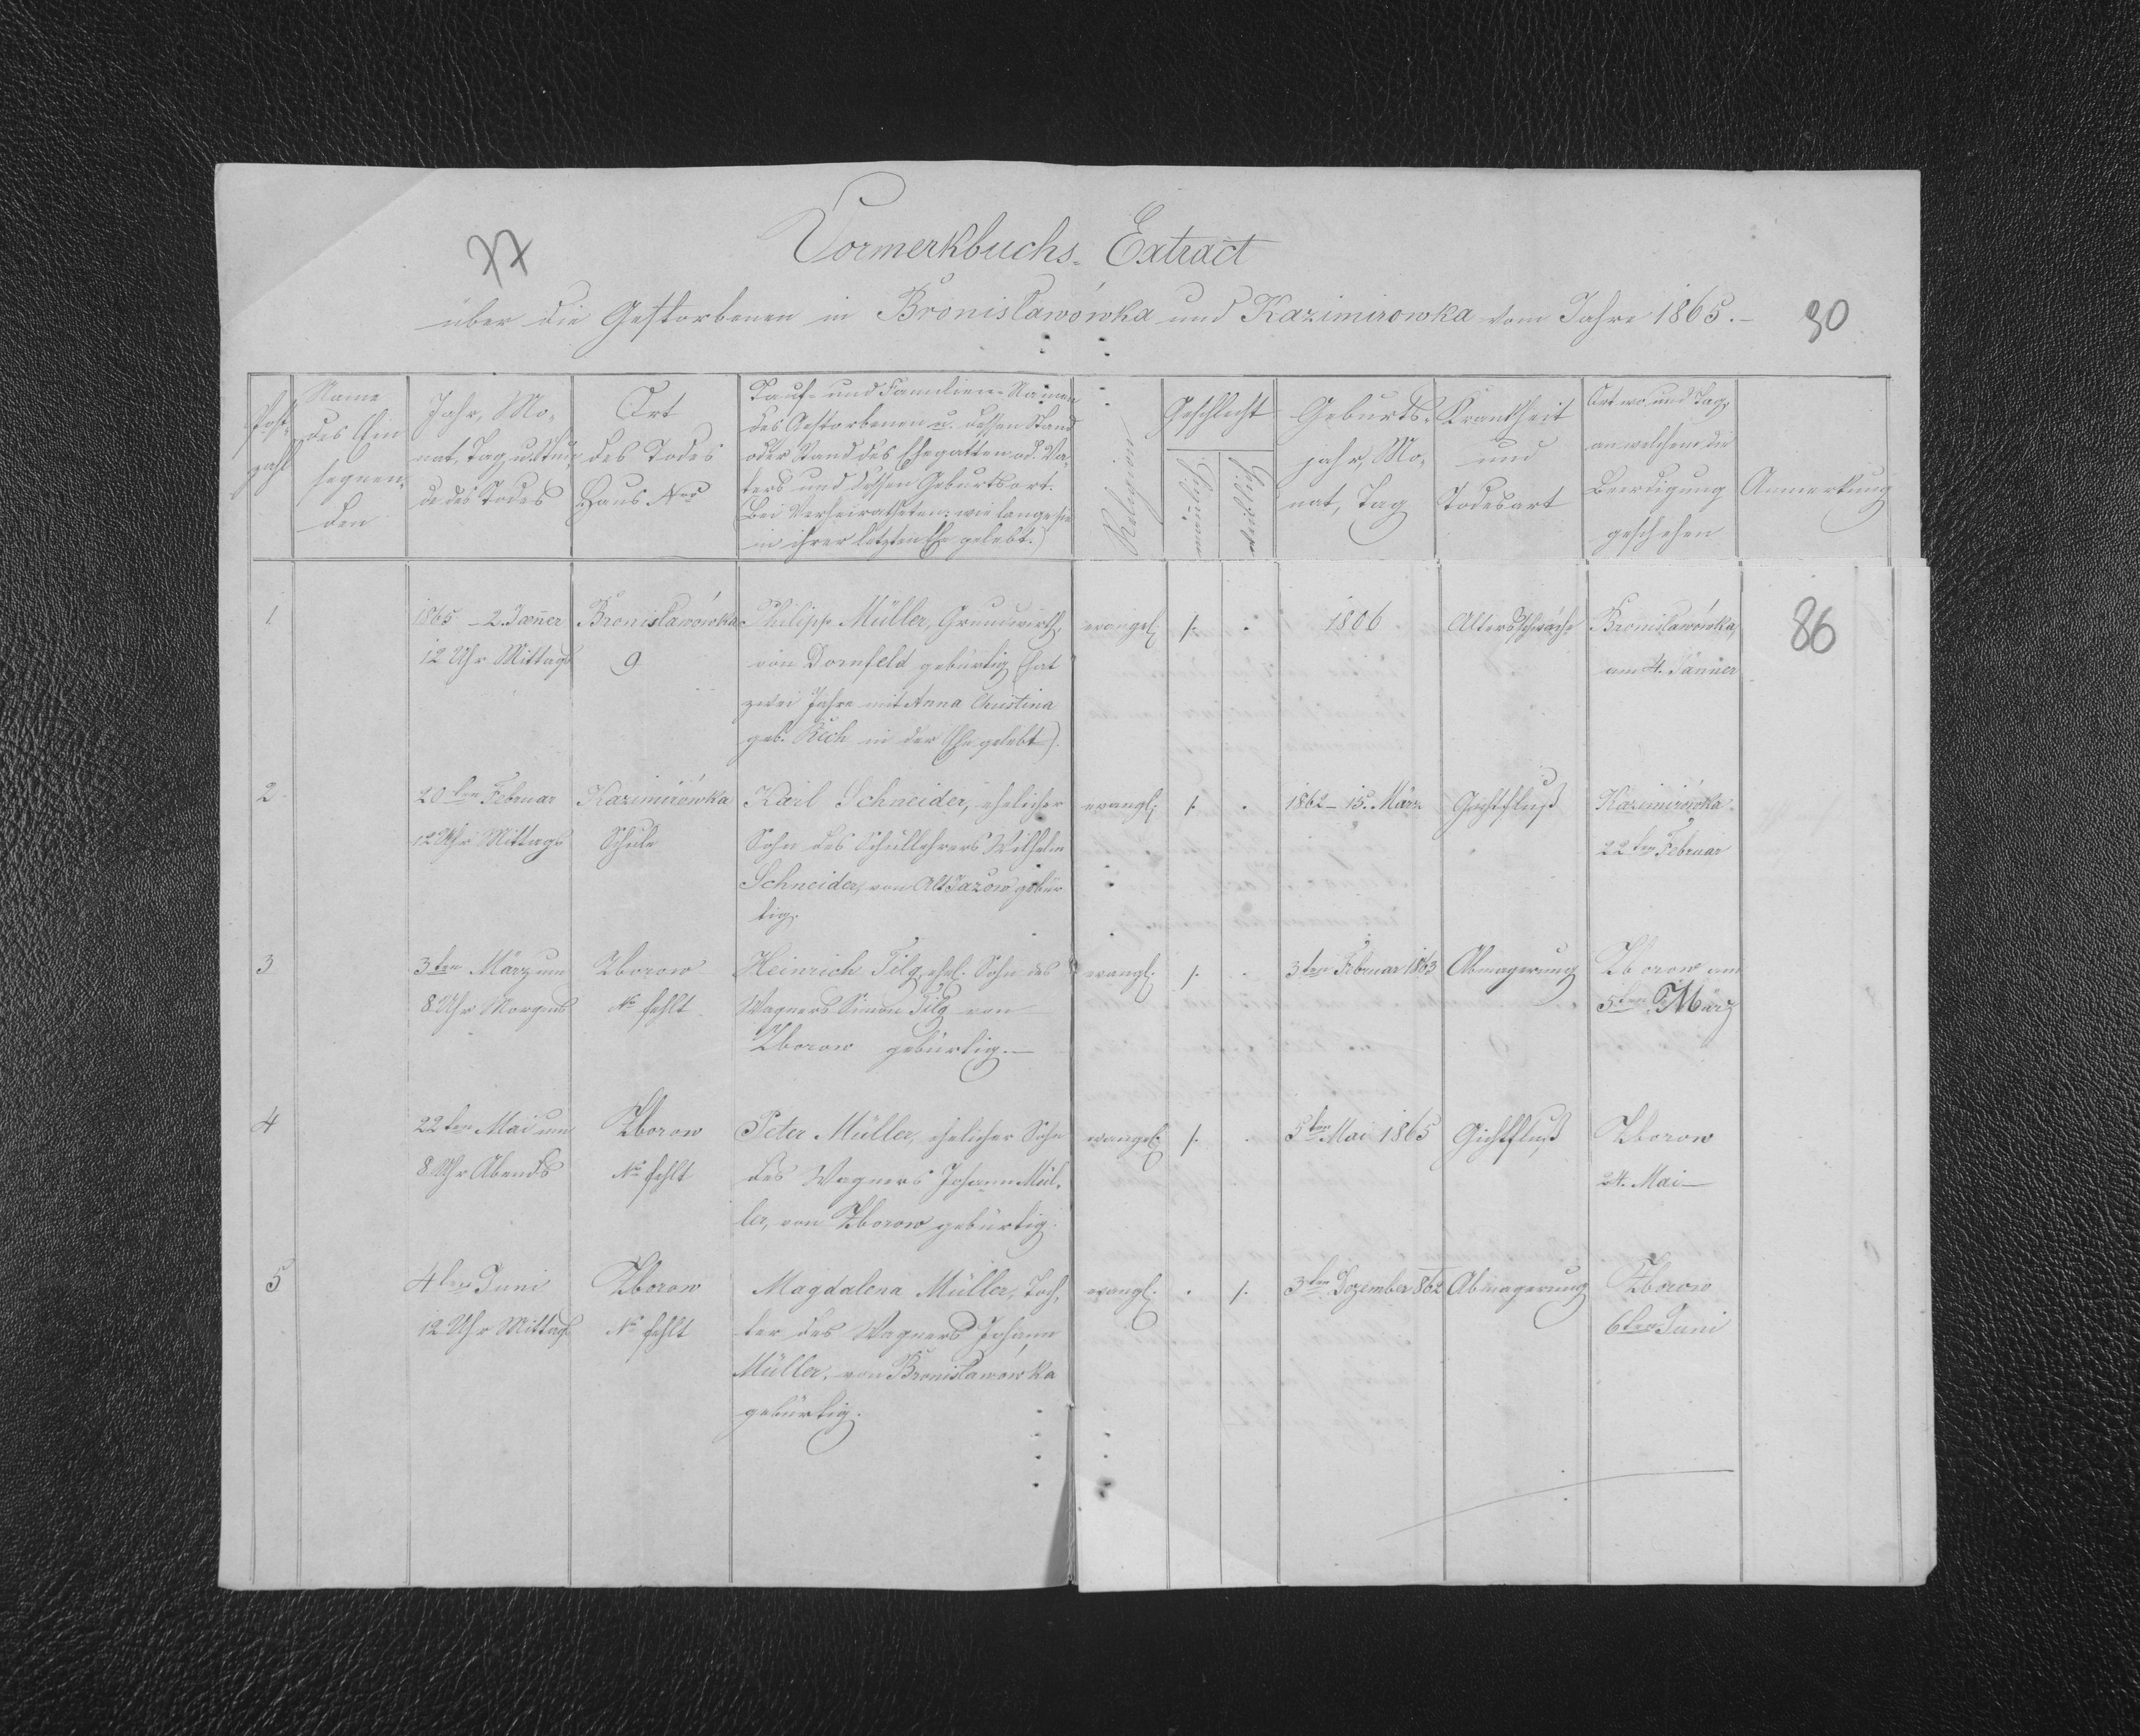 77
Vormerkbuchs-Extract
über die Gestorbenen in Bronislawówka und Kazimirowka vom Jahre 1865.-
90
Post-
zahl
Name
des Ein
segnen-
den
Jahr, Mo-
nat, Tag u. Stun-
de des Todes
Ort
des Todes
Haus Nro
Tauf- und Familien-Namen
des Gestorbenen u. dessen Stand
oder Stand des Ehegatten od. Va-
ters und dessen Geburtsort.
Bei Verheiratheten: wie lange sie
in ihrer letzten Ehe gelebt.)
Religion
Geschlecht
mänlich
weiblich
Geburts-
jahr, Mo-
nat, Tag
Krankheit
und
Todesart
Ort wo und Tag,
an welchem die
Beerdigung
geschehen
Anmerkung
1
1865 - 2. Jäner
12 Uhr Mittags
Bronislawówka
9
Philipp Müller, Grundwirth,
von Dornfeld gebürtig (hat
zwei Jahre mit Anna Christina
geb. Rech in der Ehe gelebt).
evangel.
/.
.
1806
Altersschwäche
Bronislawówka,
am 4. Jänner
86
2
20ten Februar
12 Uhr Mittags
Kazimirówka
Schule
Karl Schneider, ehelicher
Sohn des Schullehrers Wilhelm
Schneider, von Alt Jazow gebür
tig.
evangl.
/.
.
1862 - 15. März
Gichtfluß
Kazimirówka
22ten Februar
3
3ten März um
8 Uhr Morgens
Zborow
No fehlt
Heinrich Filg, ehel. Sohn des
Wagners Simon Filg von
Zborow gebürtig.-
evangl.
/.
.
3ten Februar 1863
Abmagerung
Zborow am
5ten März
4
22ten Mai um
8 Uhr Abends
Zborow
No fehlt
Peter Müller, ehelicher Sohn
des Wagners Johann Mül-
ler, von Zborow gebürtig.
evangel.
/.
.
5ten Mai 1865
Gichtfluß
Zborow
24. Mai-
5
4ten Juni
12 Uhr Mittags
Zborow
No fehlt
Magdalena Müller, Toch-
ter des Wagners Johann
Müller, von Bronislawówka
gebürtig.
evangl.
.
/.
3ten Dezember 862
Abmagerung
Zborow
6ten Juni